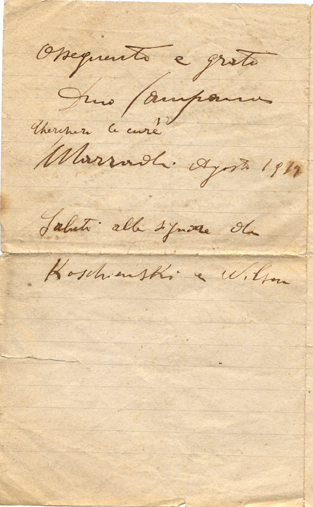 Ossequente e grato
Dino Campana
Marradi Agosto 191
Saluti alle signore da
Koschienski e Wilson